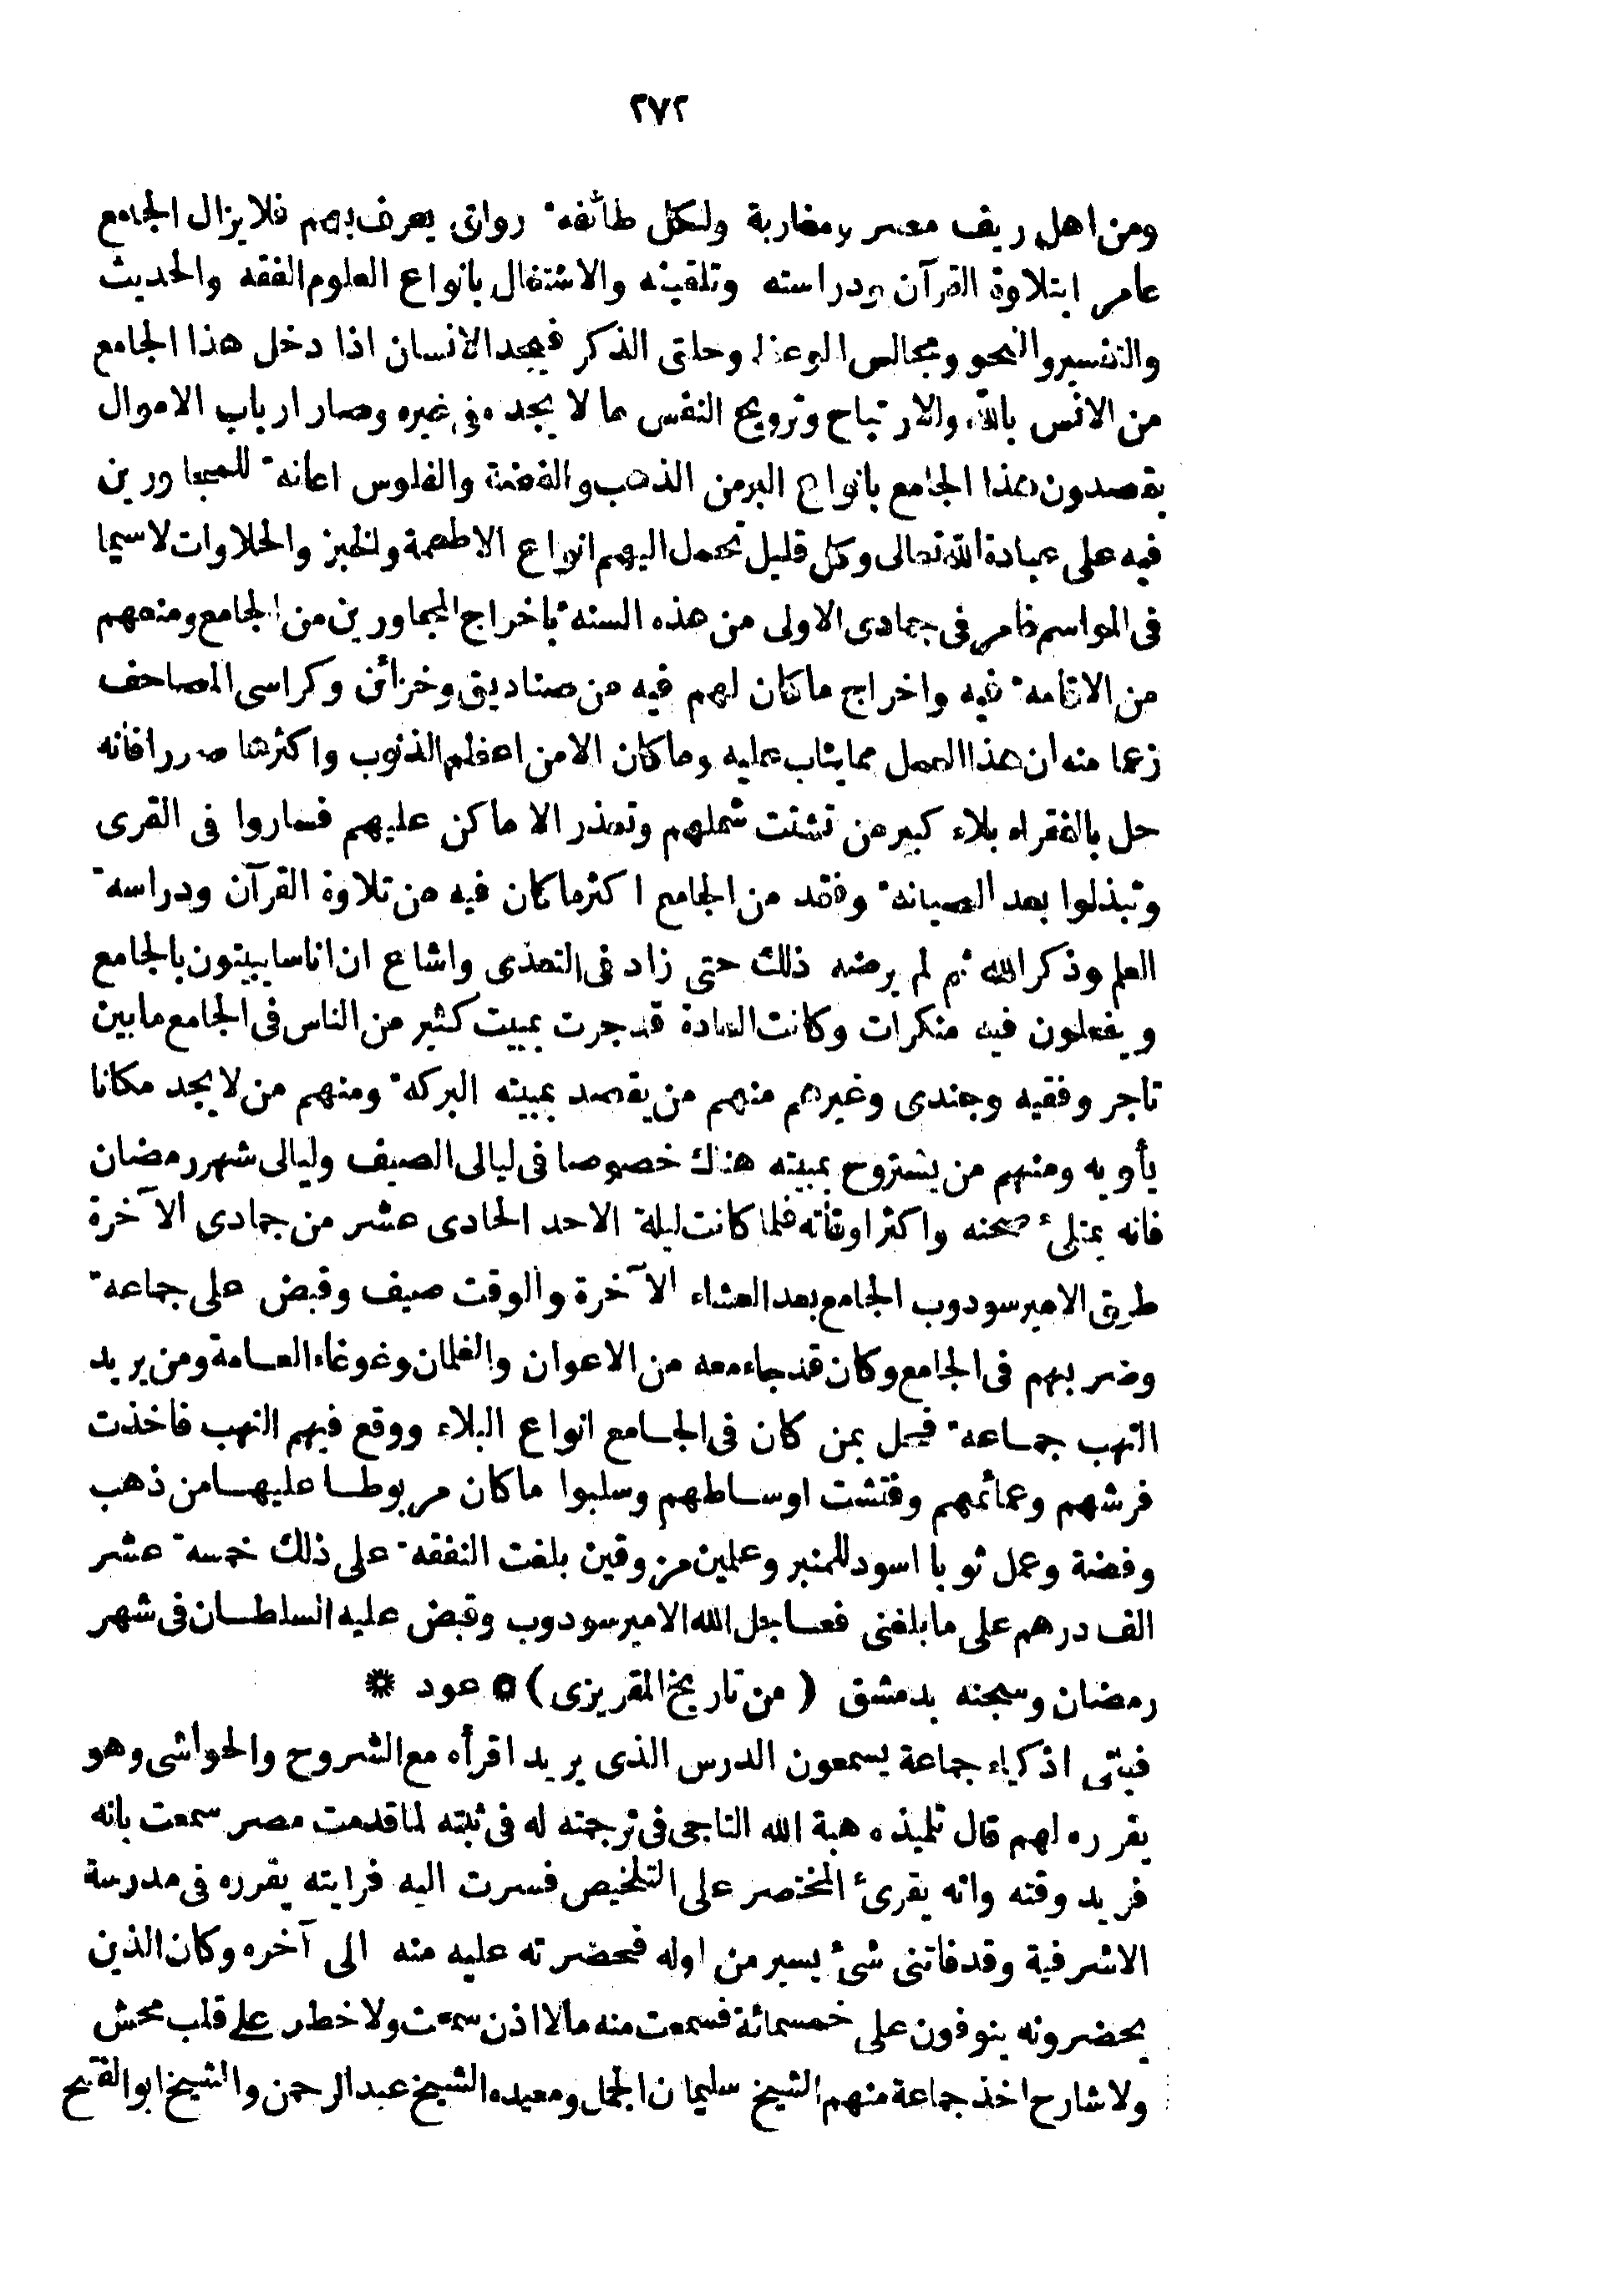 ٢٧٢
ومن اهل ريف مصر ومغاربة ولكل طائفة رواق يعرف بهم فلا يزال الجامع
عامر ابتلاوة القرآن ودراسته وتلقينه والاشتغال بانواع العلوم الفقه والحديث
والتفسير والنحو ومجالس الوعظ وحلق الذكر فيجد الانسان اذا دخل هذا الجامع
من الانس بالله والارتياح وترويح النفس ما لا يجده فى غيره وصار ارباب الاموال
يقصدون هذا الجامع بانواع البر من الذهب والفضة والفلوس اعانة للمجاورين
فيه على عبادة الله تعالى وكل قليل تحمل اليهم انواع الاطعمة والخبز والحلاوات لاسيما
فى المواسم فامر فى جمادى الاولى من هذه السنة باخراج المجاورين من الجامع ومنعهم
من الاقامة فيه واخراج ما كان لهم فيه من صناديق وخزائن وكراسى المصاحف
زعما منه ان هذا العمل مما يثاب عليه وما كان الا من اعظم الذنوب واكثرها ضررا فانه
حل بالفقراء بلاء كبير من تشتت شملهم وتعذر الاماكن عليهم فساروا فى القرى
وتبذلوا بعد الصيانة وفقد من الجامع اكثر ما كان فيه من تلاوة القرآن ودراسة
العلم وذكر الله ثم لم يرضه ذلك حتى زاد فى التعدى واشاع ان اناسا يبيتون بالجامع
ويفعلون فيه منكرات وكانت العادة قد جرت بمبيت كثير من الناس فى الجامع ما بين
تاجر وفقيه وجندى وغيرهم منهم من يقصد بمبيته البركة ومنهم من لا يجد مكانا
يأويه ومنهم من يستروح بمبيته هناك خصوصا فى ليالى الصيف وليالى شهر رمضان
فانه يمتلئ صحنه واكثر اوقاته فلما كانت ليلة الاحد الحادى عشر من جمادى الآخرة
طريق الامير سودوب الجامع بعد العشاء الآخرة والوقت صيف وقبض على جماعة
وضربهم فى الجامع وكان قد جاء معه من الاعوان والغلمان وغوغاء العامة ومن يريد
النهب جماعة فحل بمن كان فى الجامع انواع البلاء ووقع فيهم النهب فاخذت
فرشهم وعمائمهم وفتشت اوساطهم وسلبوا ما كان مربوطا عليها من ذهب
وفضة وعمل ثوبا اسود للمنبر وعلمين مزوقين بلغت النفقة على ذلك خمسة عشر
الف درهم على ما بلغنى فعاجل الله الامير سودوب وقبض عليه السلطان فى شهر
رمضان وسجنه بدمشق (من تاريخ المقريزى) * عود *
فبقى اذكياء جماعة يسمعون الدرس الذى يريد اقرأه مع الشروح والحواشى وهو
يقرره لهم قال تلميذه هبة الله التاجى فى ترجمته له فى ثبته لما قدمت مصر سمعت بانه
فريد وقته وانه يقرئ المختصر على التلخيص فسرت اليه فرايته يقرره فى مدرسة
الاشرفية وقد فاتنى شئ يسير من اوله فحضرته عليه منه الى آخره وكان الذين
يحضرونه ينوفون على خمسمائة فسمعت منه مالا اذن سمعت ولا خطر على قلب محش
ولا شارح اخذ جماعة منهم الشيخ سليمان الجمل ومعيده الشيخ عبد الرحمن والشيخ ابو الفتح